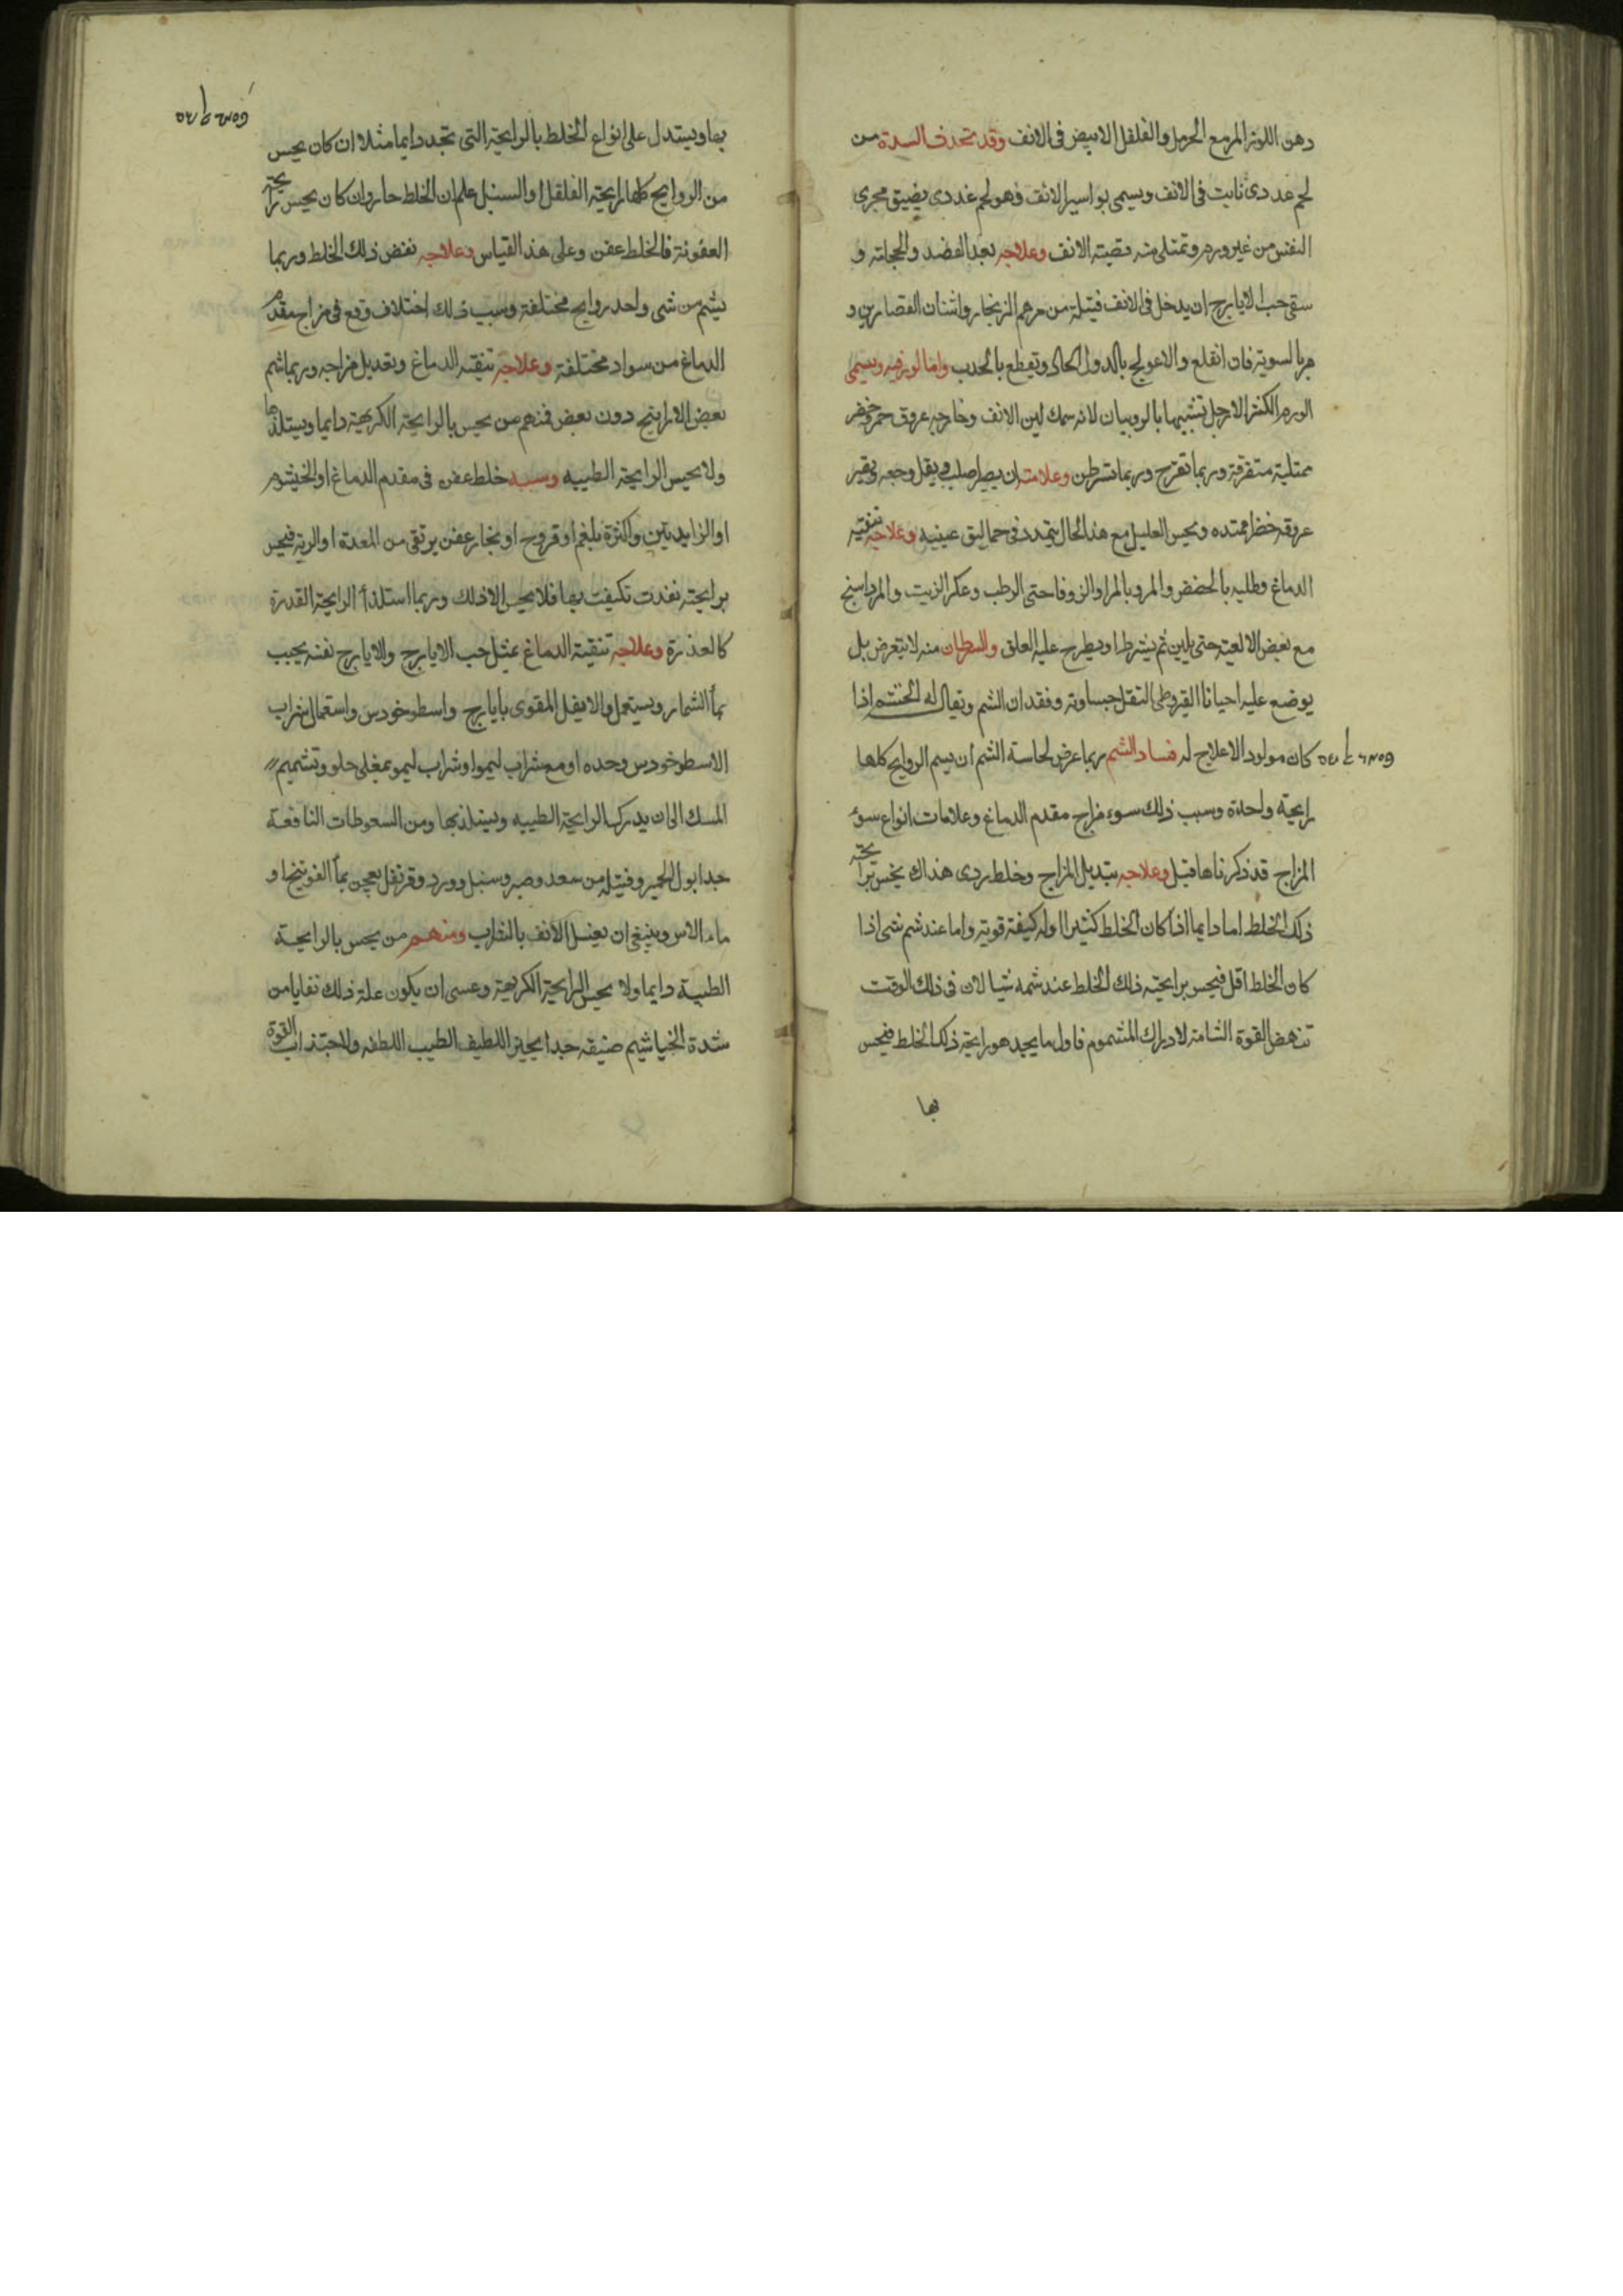 دهن اللوز المر مع الحرمل والفلفل الابيض فى الانف وقد تحدث السدة من
لحم غددى نابت فى الانف ويسمى بواسير الانف وهو لحم غددى يضيق مجرى
النفس من غير ورم وتمتلى منه قصبة الانف وعلاجه بعد الفصد والحجامة و
سقى حب الايارج ان يدخل فى الانف فتيلة من مرهم الزنجار واشنان القصارين و
فان انقلع والا عولج ويقطع ويسمى
الورم الكثير الارجل تشبيها بالروبيان لانه سمك لين الانف وخارجه عروق حمر وخضر
ممتلية متفرقة وربما تقرح وربما تسرطن وعلامته ان يصير صلب ويقل وجعه وتصير
عروقه خضرا ممتده ويحس العليل مع هذا الحال يتمدد فى حماليق عينيه وعلاجه تنقية
الدماغ وطليه بالحضض والمر والزوفا حتى الرطب وعكر الزيت والمرداسنج
مع بعض الالعية حتى يلين ثم يشرط او يطرح عليه العلق والسرطان منه لا يتعرض بل
يوضع عليه احيانا القيروطى وفقدان الشم ويقال له الخشم اذا
كان مولود الا علاج له فساد الشم ربما عرض لحاسة الشم ان يسم الروايح كلها
رايحة واحدة وسبب ذلك سوء مزاج مقدم الدماغ وعلامات انواع سوء
المزاج قد ذكرناها قبل وعلاجه تبديل المزاج وخلط ردى هناك يحس برايحة
ذلك الخلط اما دايما اذا كان الخلط كثيرا او له كيفة قوية واما عند شم شى اذا
كان الخلط اقل فيحس برايحته ذلك الخلط عند شمه شيا لان فى ذلك الوقت
تنهض القوة الشامة لادراك المشموم فاول ما يجد هو رايحة ذلك الخلط فيحس
بها
بها ويستدل على انواع الخلط بالرايحة التى تجد دايما مثلا ان كان يحس
من الروايح كلها رايحة الفلفل او السنبل علم ان الخلط حار وان كان يحس رايحة
العفونة فالخلط عفن وعلى هذا القياس وعلاجه نفض ذلك الخلط وربما
يشم من شى واحد روايح مختلفة وسبب ذلك اختلاف وقع فى مزاج مقدم
الدماغ من سواد مختلفة وعلاجه تنقية الدماغ وتعديل مزاجه وربما شم
بعض الارايح دون بعض فمنهم من يحس بالرايحة الكريهة دايما ويستلذها
ولا يحس الرايحة الطيبه وسببه خلط عفن فى مقدم الدماغ او الخيشوم
او الزايدتين واكثره بلغم او قروح او بخار عفن يرتقى من المعدة او الرية فيحس
برايحته نفذت تكيفت بها فلا يحس الا ذلك وربما استلذ الرايحة القذرة
كالعذرة وعلاجه تنقية الدماغ بمثل حب الايارج والايارج نفسه يحبب
بما الشمار ويستعمل المقوى بايارج واسطوخودس واستعمال شراب
الاسطوخودس وحده او مع شراب ليموا وشراب ليمو بمغلى حلو وتشميم
المسك الى ان يدرك الرايحة الطيبه ويستلذ بها ومن السعوطات النافعة
جدا بول الحمير وفتيله من سعد وصبر وسنبل وورد وقرنفل يعجن بما الفوتنج او
ماء الاس وينبغى ان يغسل الانف بالشراب ومنهم من يحس بالرايحة
الطيبة دايما ولا يحس الرايحة الكريهة وعسى ان يكون علة ذلك من
شدة الخياشيم ضيقه جدا اللطيف الطيب القوة